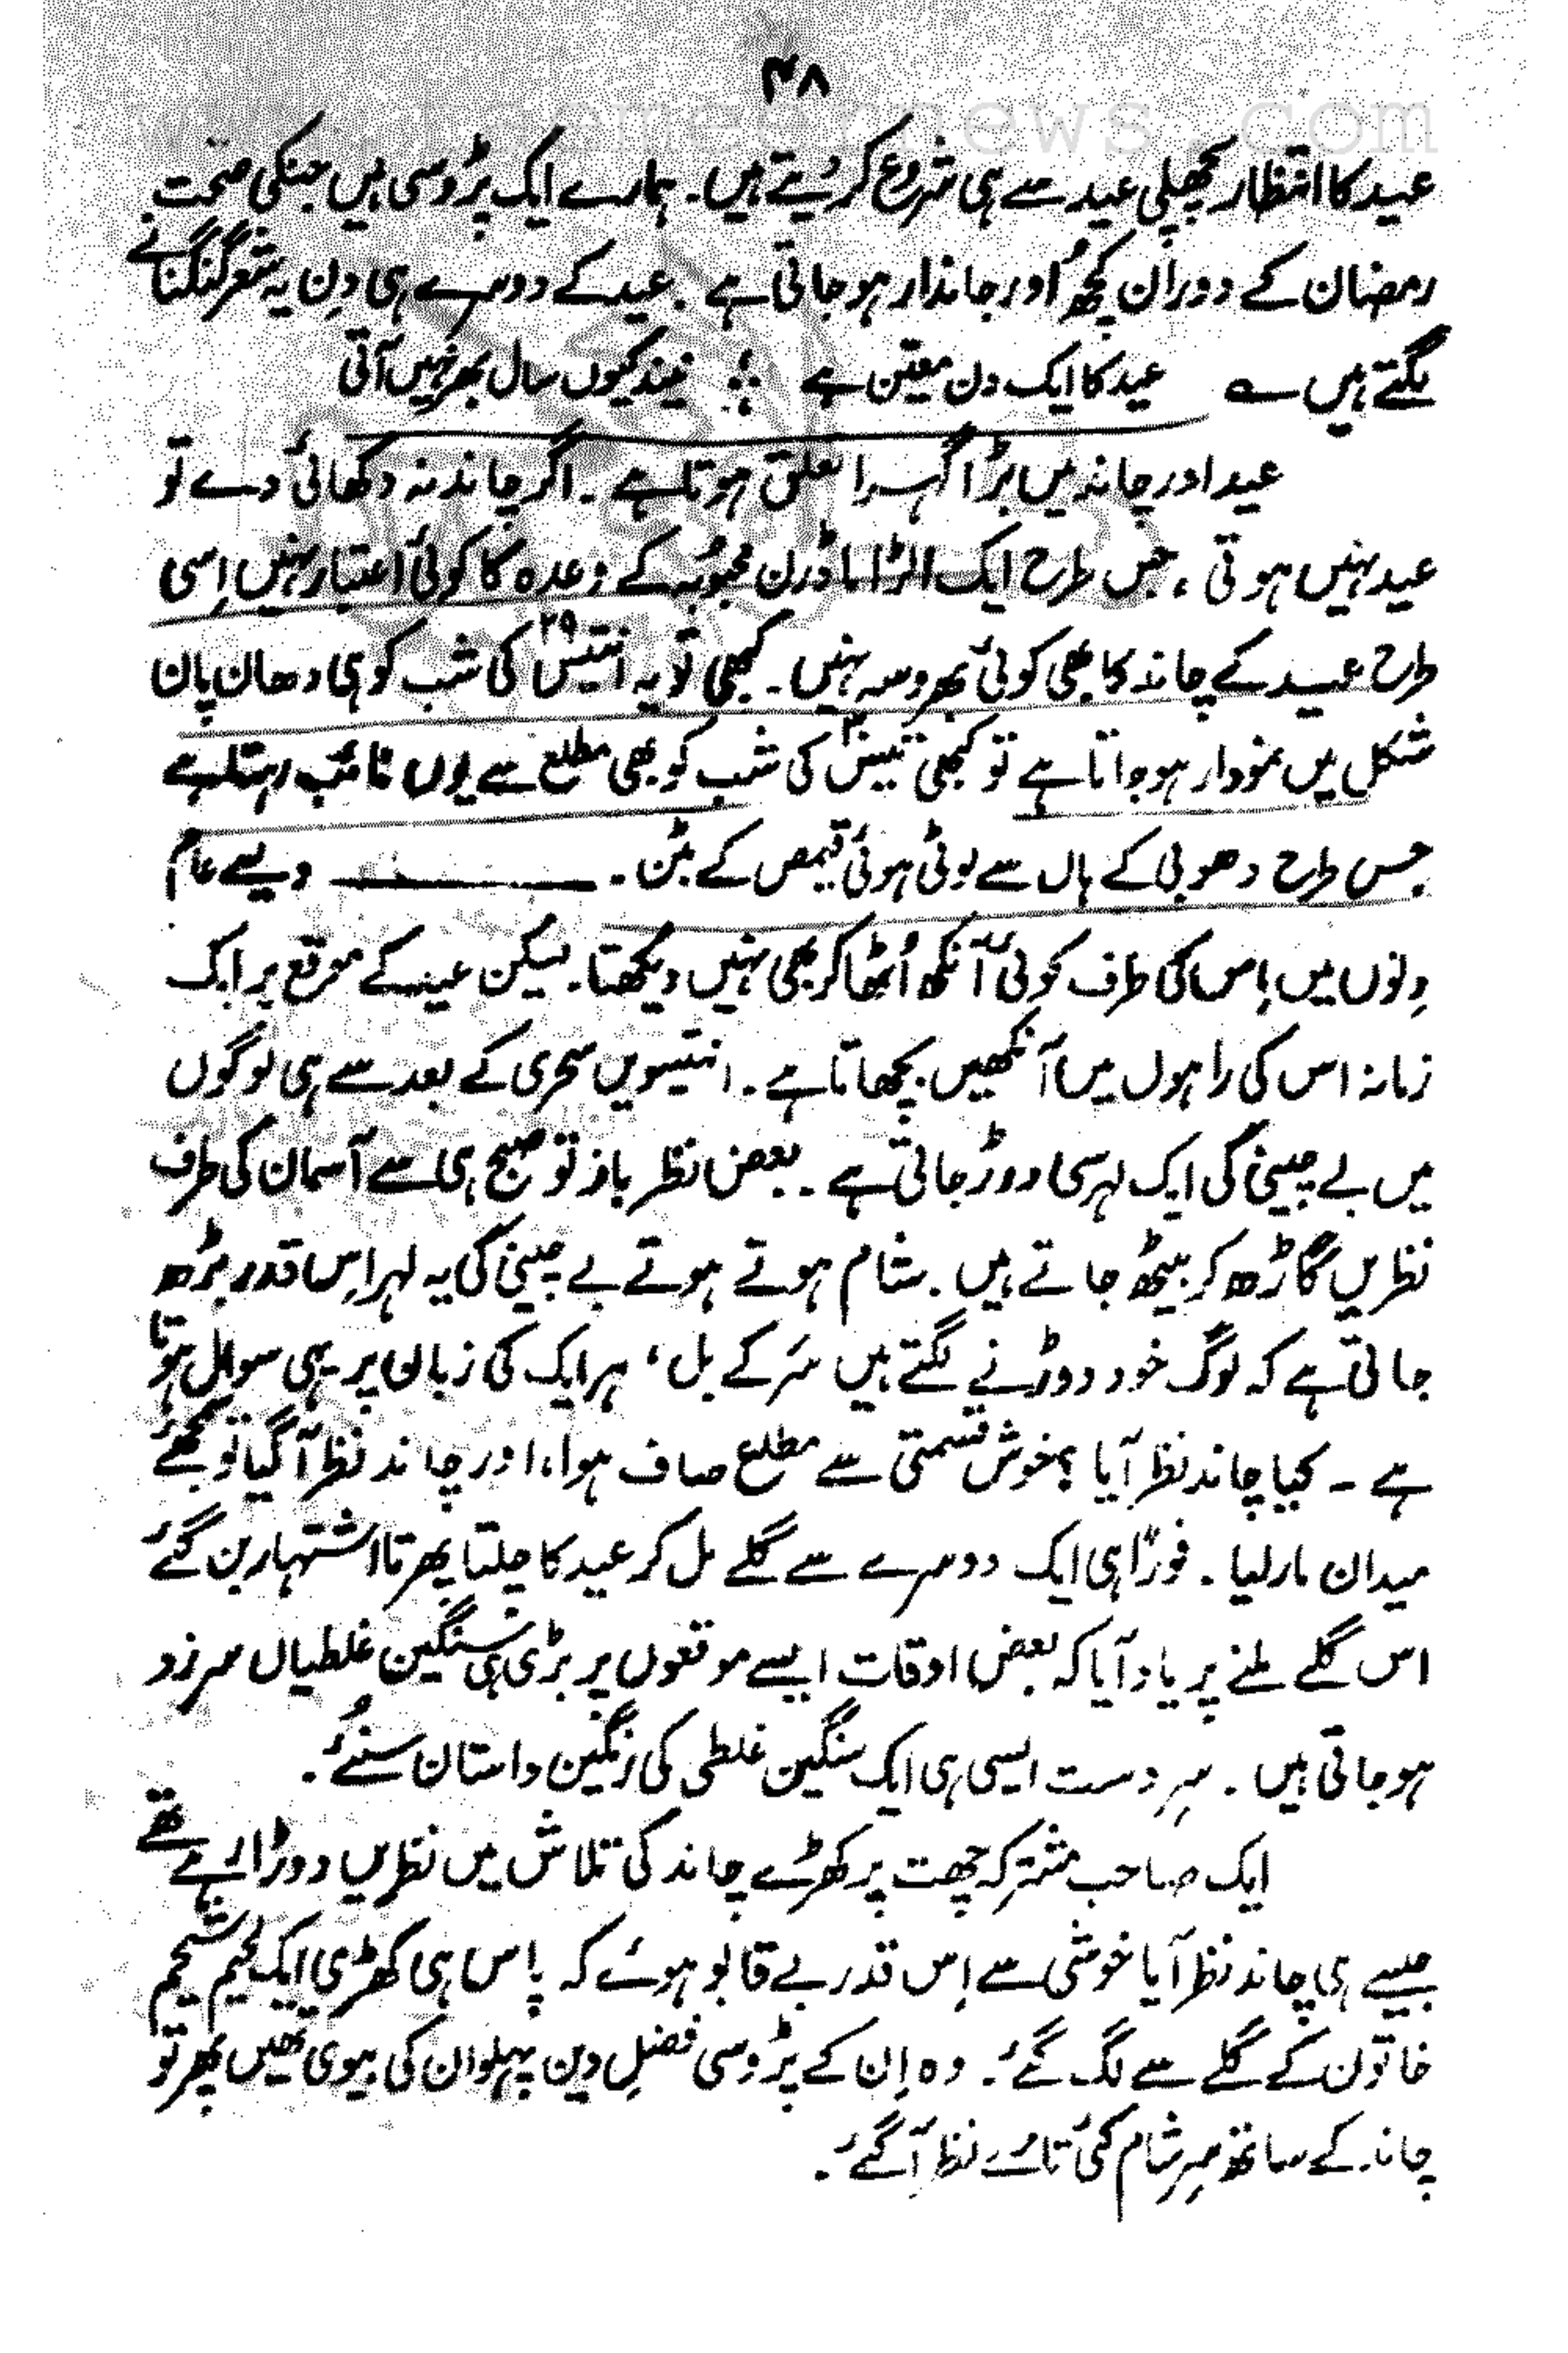 ۴۸
عید کا انتظار پچھلی عید سے ہی شروع کر دیتے ہیں۔ ہمارے ایک پڑوسی ہیں جنکی صحت
رمضان کے دوران کچھ اور جاندار ہو جاتی ہے۔ عید کے دوسرے ہی دِن یہ شعر گنگنانے
لگتے ہیں ؎ عید کا ایک دن معیّن ہے ؛ نیند کیوں سال بھر نہیں آتی
عید اور چاند میں بڑا گہرا تعلق ہوتا ہے۔ اگر چاند نہ دکھائی دے تو
عید نہیں ہوتی، جس طرح ایک الٹرا ماڈرن محبوبہ کے وعدہ کا کوئی اعتبار نہیں اِسی
طرح عید کے چاند کا بھی کوئی بھروسہ نہیں۔ کبھی تو یہ انتیس ۲۹ کی شب کو ہی دھان پان
شکل میں نمودار ہو جاتا ہے تو کبھی تیس ۳۰ کی شب کو بھی مطلع سے یوں غائب رہتا ہے
جس طرح دھوبی کے ہاں سے لوٹی ہوئی قمیص کے بٹن۔ ——— ویسے عام
دِنوں میں اِس کی طرف کوئی آنکھ اُٹھا کر بھی نہیں دیکھتا۔ لیکن عید کے موقع پر ایک
زمانہ اس کی راہوں میں آنکھیں بچھاتا ہے۔ انتیسویں سحری کے بعد سے ہی لوگوں
میں بے چینی کی ایک لہر سی دوڑ جاتی ہے۔ بعض نظر باز تو صبح ہی سے آسمان کی طرف
نظریں گاڑھ کر بیٹھ جاتے ہیں۔ شام ہوتے ہوتے بے چینی کی یہ لہر اِس قدر بڑھ
جاتی ہے کہ لوگ خود دوڑنے لگتے ہیں سَر کے بل، ہر ایک کی زبان پر یہی سوال ہوتا
ہے ۔ کیا چاند نظر آیا؟ خوش قسمتی سے مطلع صاف ہوا، اور چاند نظر آ گیا تو سمجھئے
میدان مار لیا۔ فوراً ہی ایک دوسرے سے گلے مل کر عید کا چلتا پھرتا اشتہار بن گئے
اس گلے ملنے پر یاد آیا کہ بعض اوقات ایسے موقعوں پر بڑی ہی سنگین غلطیاں سرزد
ہو جاتی ہیں۔ سرِ دست ایسی ہی ایک سنگین غلطی کی رنگین داستان سنئے۔
ایک صاحب مشترکہ چھت پر کھڑے چاند کی تلاش میں نظریں دوڑا رہے تھے
جیسے ہی چاند نظر آیا خوشی سے اِس قدر بے قابو ہوئے کہ پاس ہی کھڑی ایک لحیم شحیم
خاتون کے گلے سے لگ گئے۔ وہ اِن کے پڑوسی فضلِ دین پہلوان کی بیوی تھیں پھر تو
چاند کے ساتھ سرِ شام کئی تارے نظر آ گئے۔